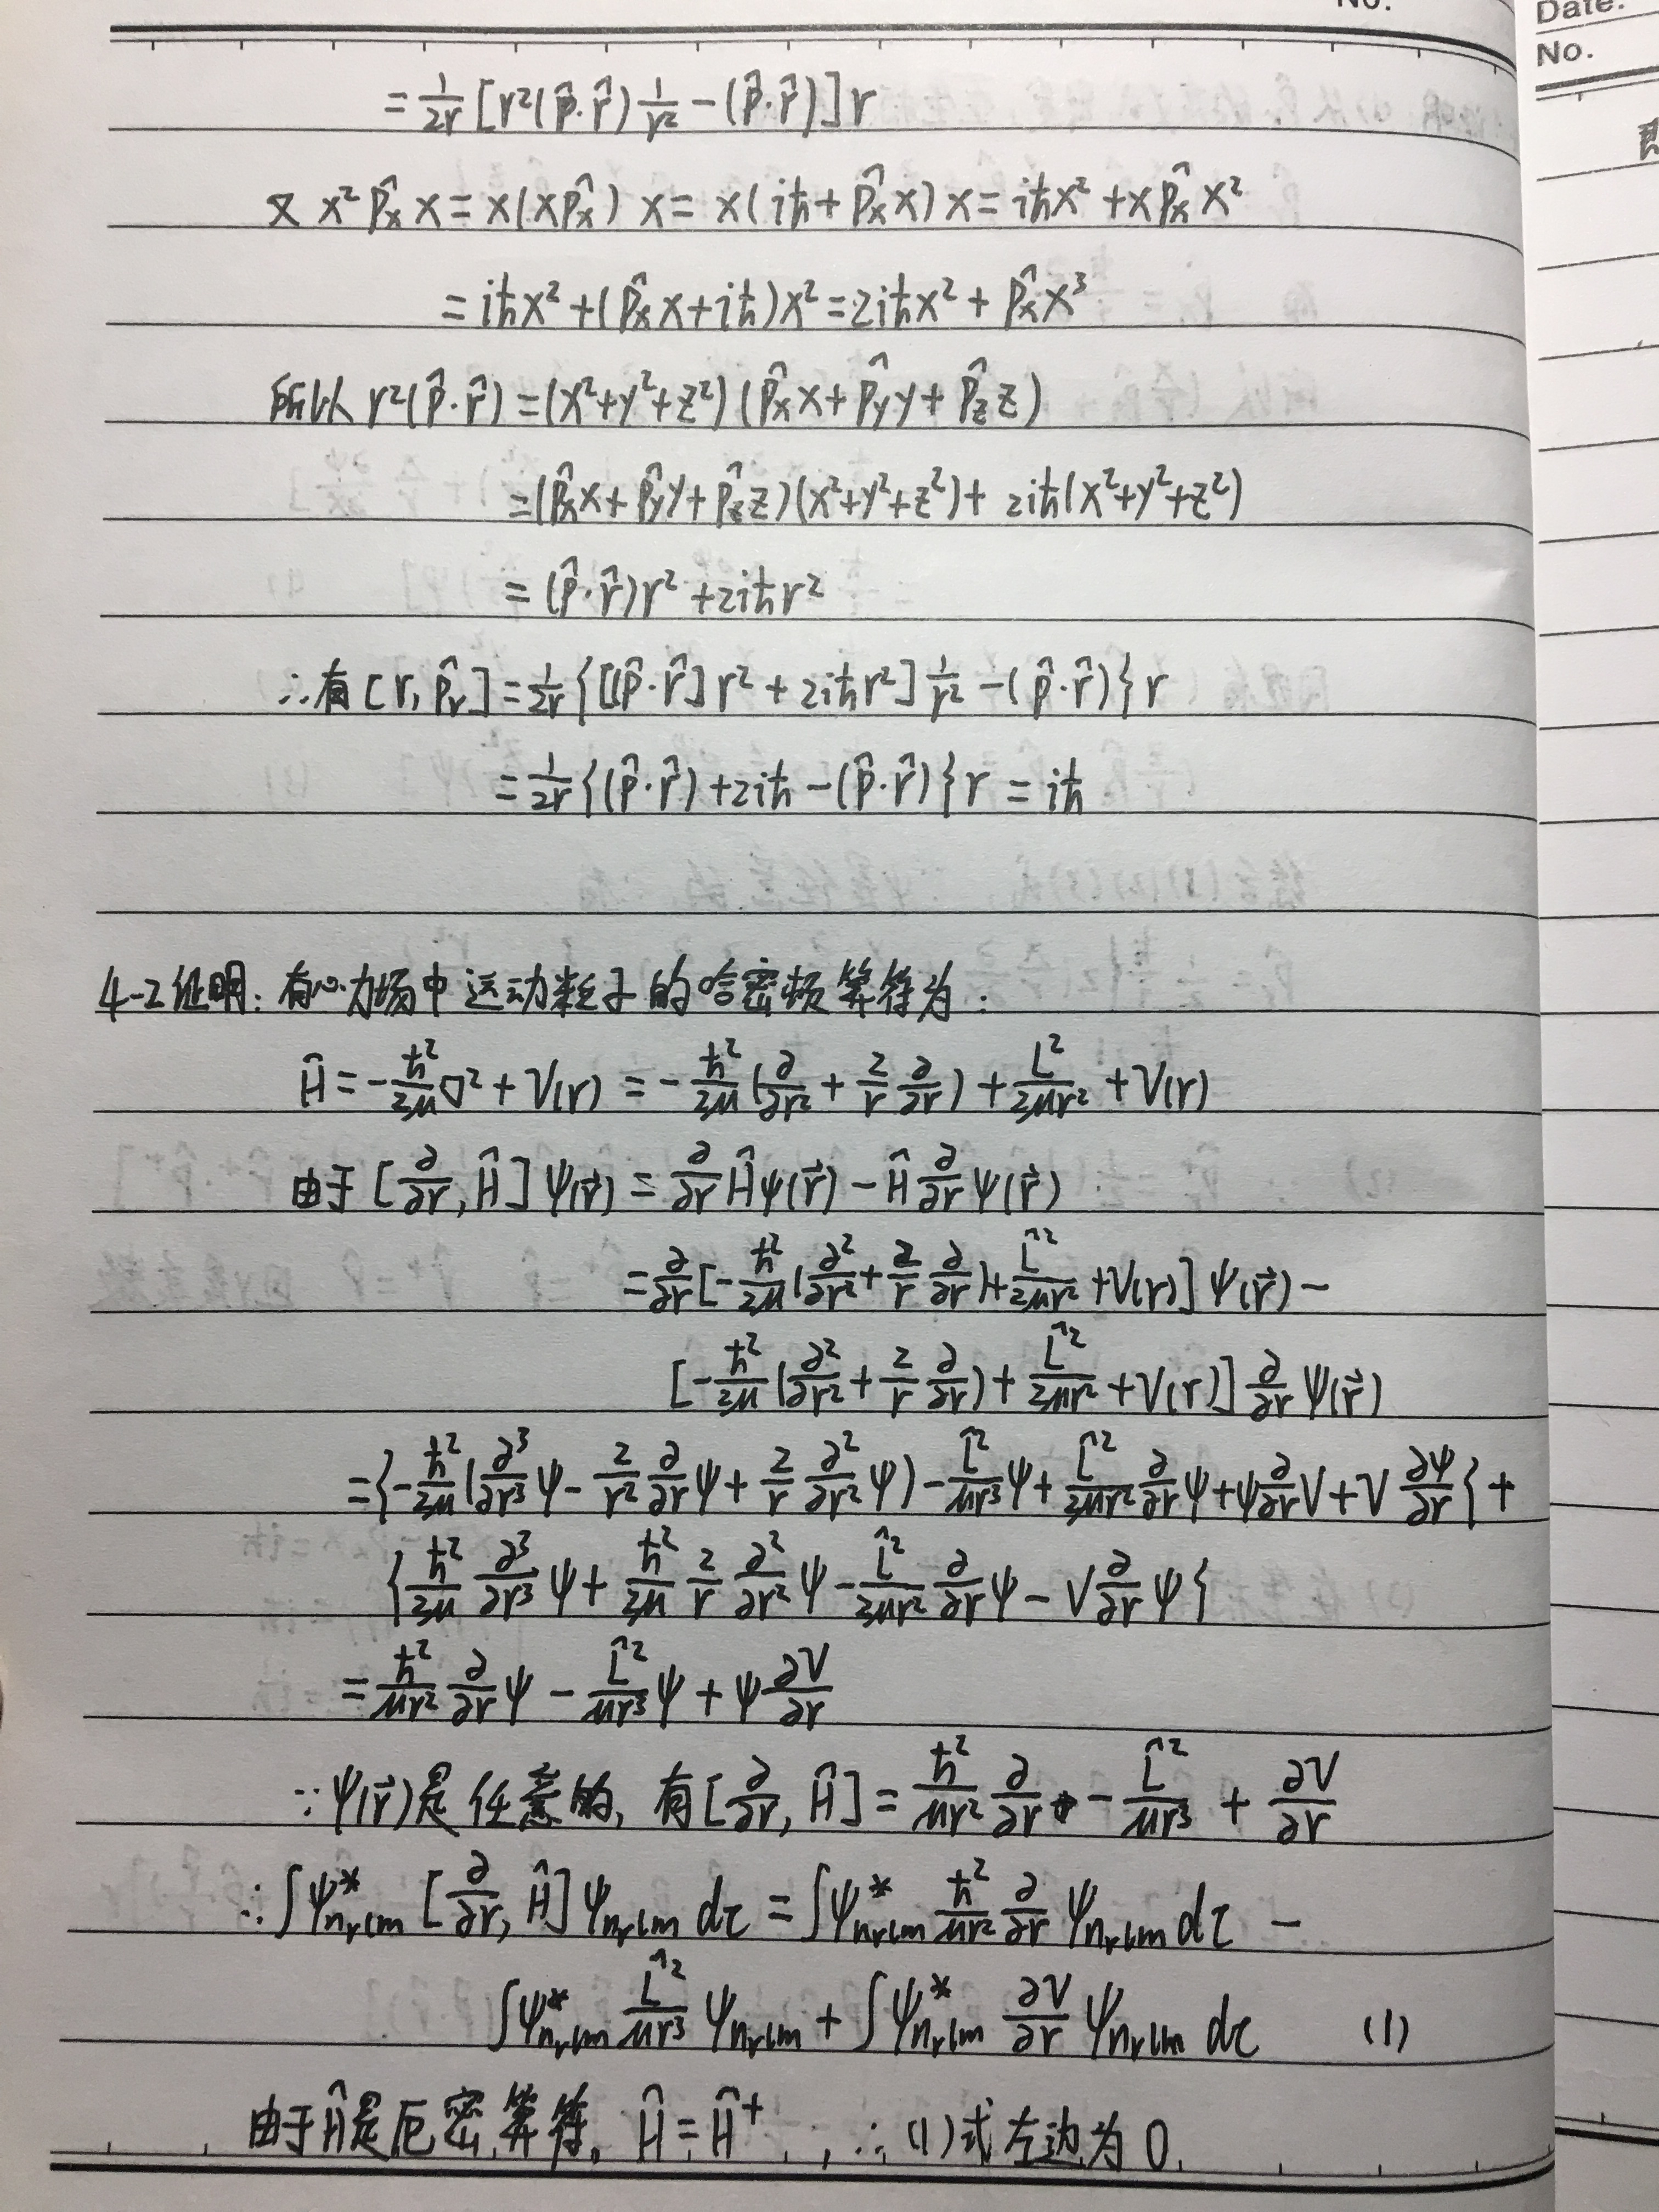 No.
Date.
No.
= 1/2r [r²(p̂·r̂) 1/r² - (p̂·r̂)] r
又 x² p̂ₓ x = x(x p̂ₓ) x = x(iħ + p̂ₓ x) x = iħx² + x p̂ₓ x²
= iħx² + (p̂ₓ x + iħ)x² = 2iħx² + p̂ₓ x³
所以 r²(p̂·r̂) = (x²+y²+z²)(p̂ₓ x + p̂_y y + p̂_z z)
= (p̂ₓ x + p̂_y y + p̂_z z)(x²+y²+z²) + 2iħ(x²+y²+z²)
= (p̂·r̂)r² + 2iħr²
∴有 [r, p̂_r] = 1/2r {[(p̂·r̂] r² + 2iħr²] 1/r² - (p̂·r̂)} r
= 1/2r {(p̂·r̂) + 2iħ - (p̂·r̂)} r = iħ
4-2 证明: 有心力场中运动粒子的哈密顿算符为:
Ĥ = -ħ²/2μ ∇² + V(r) = -ħ²/2μ (∂/∂r² + 2/r ∂/∂r) + L²/2μr² + V(r)
由于 [∂/∂r, Ĥ] ψ(r⃗) = ∂/∂r Ĥψ(r⃗) - Ĥ ∂/∂r ψ(r⃗)
= ∂/∂r [-ħ²/2μ (∂²/∂r² + 2/r ∂/∂r) + L̂²/2μr² + V(r)] ψ(r⃗) -
[-ħ²/2μ (∂²/∂r² + 2/r ∂/∂r) + L̂²/2μr² + V(r)] ∂/∂r ψ(r⃗)
= {-ħ²/2μ (∂³/∂r³ ψ - 2/r² ∂/∂r ψ + 2/r ∂²/∂r² ψ) - L̂²/μr³ ψ + L̂²/2μr² ∂/∂r ψ + ψ ∂/∂r V + V ∂ψ/∂r} +
{ħ²/2μ ∂³/∂r³ ψ + ħ²/2μ 2/r ∂²/∂r² ψ - L̂²/2μr² ∂/∂r ψ - V ∂/∂r ψ}
= ħ²/μr² ∂/∂r ψ - L̂²/μr³ ψ + ψ ∂V/∂r
∵ ψ(r⃗)是任意的, 有 [∂/∂r, Ĥ] = ħ²/μr² ∂/∂r - L̂²/μr³ + ∂V/∂r
∴ ∫ψ*_{nᵣlm} [∂/∂r, Ĥ] ψ_{nᵣlm} dτ = ∫ψ*_{nᵣlm} ħ²/μr² ∂/∂r ψ_{nᵣlm} dτ -
∫ψ*_{nᵣlm} L̂²/μr³ ψ_{nᵣlm} + ∫ψ*_{nᵣlm} ∂V/∂r ψ_{nᵣlm} dτ (1)
由于Ĥ是厄密算符, Ĥ = Ĥ⁺, ∴(1)式左边为0.